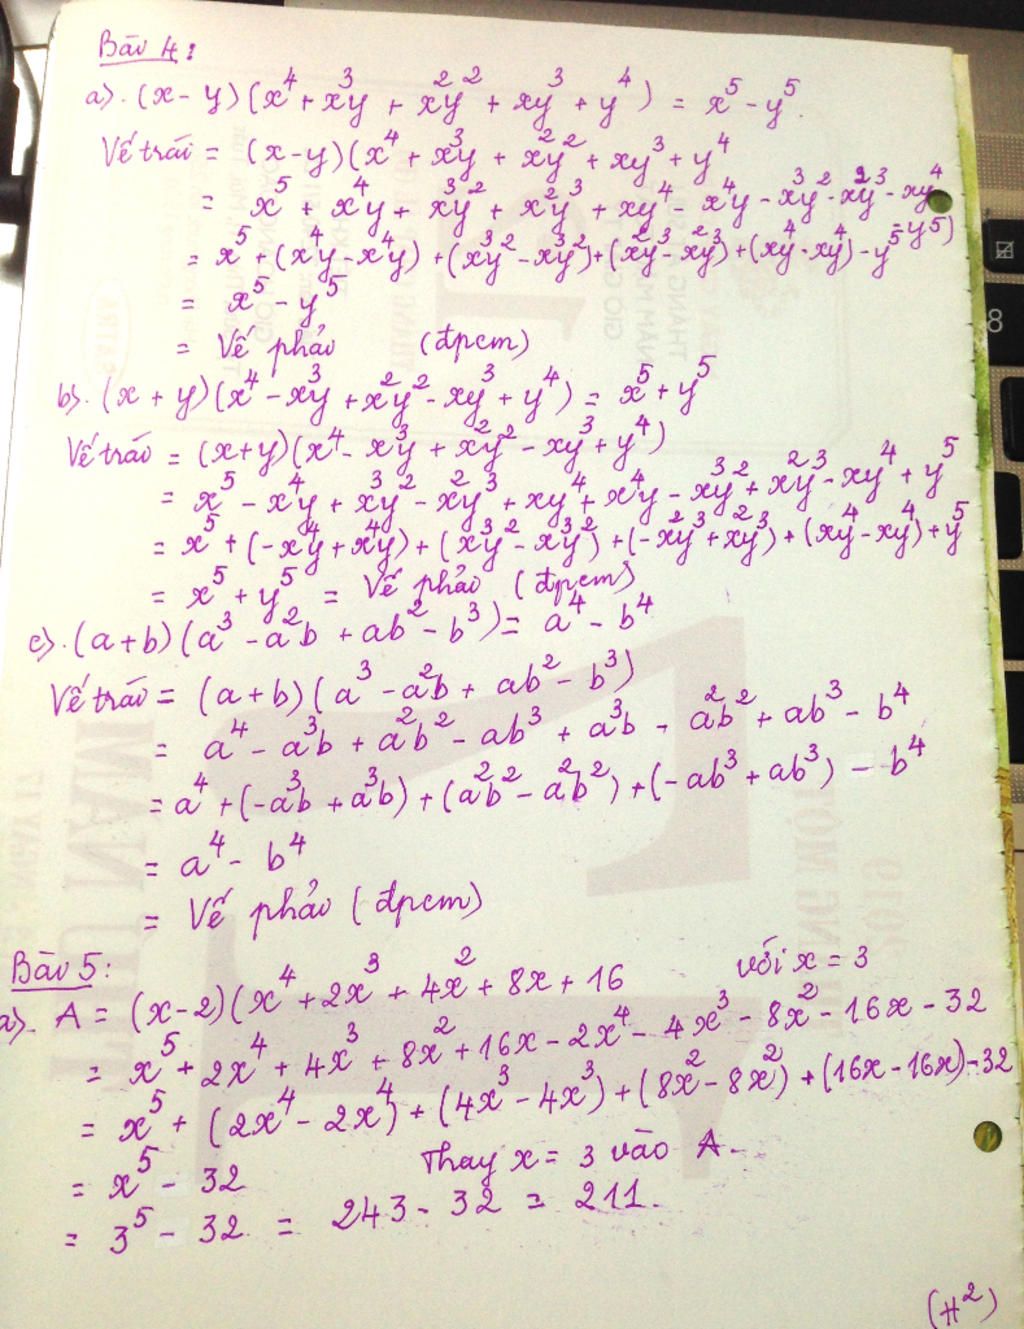 Bài 4:
a). (x - y)(x⁴ + x³y + x²y² + xy³ + y⁴) = x⁵ - y⁵.
Vế trái = (x-y)(x⁴ + x³y + x²y² + xy³ + y⁴
= x⁵ + x⁴y + x³y² + x²y³ + xy⁴ - x⁴y - x³y² - x²y³ - xy⁴
- y⁵)
= x⁵ + (x⁴y - x⁴y) + (x³y² - x³y²) + (x²y³ - x²y³) + (xy⁴ - xy⁴) - y⁵
= x⁵ - y⁵
= Vế phải (đpcm)
b). (x + y)(x⁴ - x³y + x²y² - xy³ + y⁴) = x⁵ + y⁵
Vế trái = (x+y)(x⁴ - x³y + x²y² - xy³ + y⁴)
= x⁵ - x⁴y + x³y² - x²y³ + xy⁴ + x⁴y - x³y² + x²y³ - xy⁴ + y⁵
= x⁵ + (-x⁴y + x⁴y) + (x³y² - x³y²) + (-x²y³ + x²y³) + (xy⁴ - xy⁴) + y⁵
= x⁵ + y⁵ = Vế phải (đpcm)
c). (a+b)(a³ - a²b + ab² - b³) = a⁴ - b⁴
Vế trái = (a+b)(a³ - a²b + ab² - b³)
= a⁴ - a³b + a²b² - ab³ + a³b - a²b² + ab³ - b⁴
= a⁴ + (-a³b + a³b) + (a²b² - a²b²) + (-ab³ + ab³) - b⁴
= a⁴ - b⁴
= Vế phải (đpcm)
Bài 5:
a). A = (x-2)(x⁴ + 2x³ + 4x² + 8x + 16 với x = 3
= x⁵ + 2x⁴ + 4x³ + 8x² + 16x - 2x⁴ - 4x³ - 8x² - 16x - 32
= x⁵ + (2x⁴ - 2x⁴) + (4x³ - 4x³) + (8x² - 8x²) + (16x - 16x) - 32
= x⁵ - 32 Thay x = 3 vào A.
= 3⁵ - 32 = 243 - 32 = 211.
(H²)
8